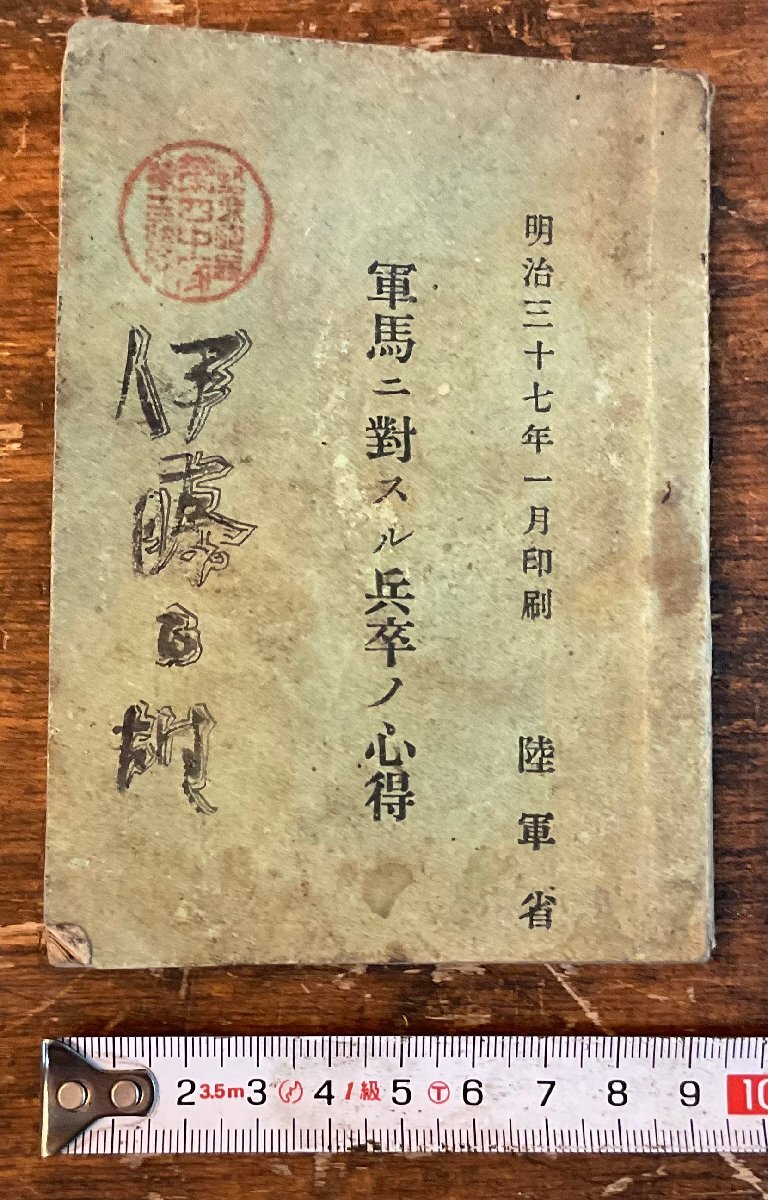 明治三十七年一月印刷 陸軍省
軍馬ニ對スル兵卒ノ心得
伊藤
2 3.5m 3 4 1級 5 6 7 8 9 10